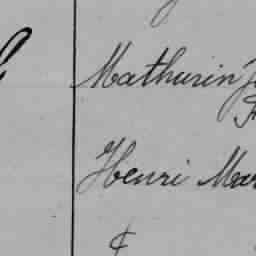 Mathurin
Henri Mar
¢